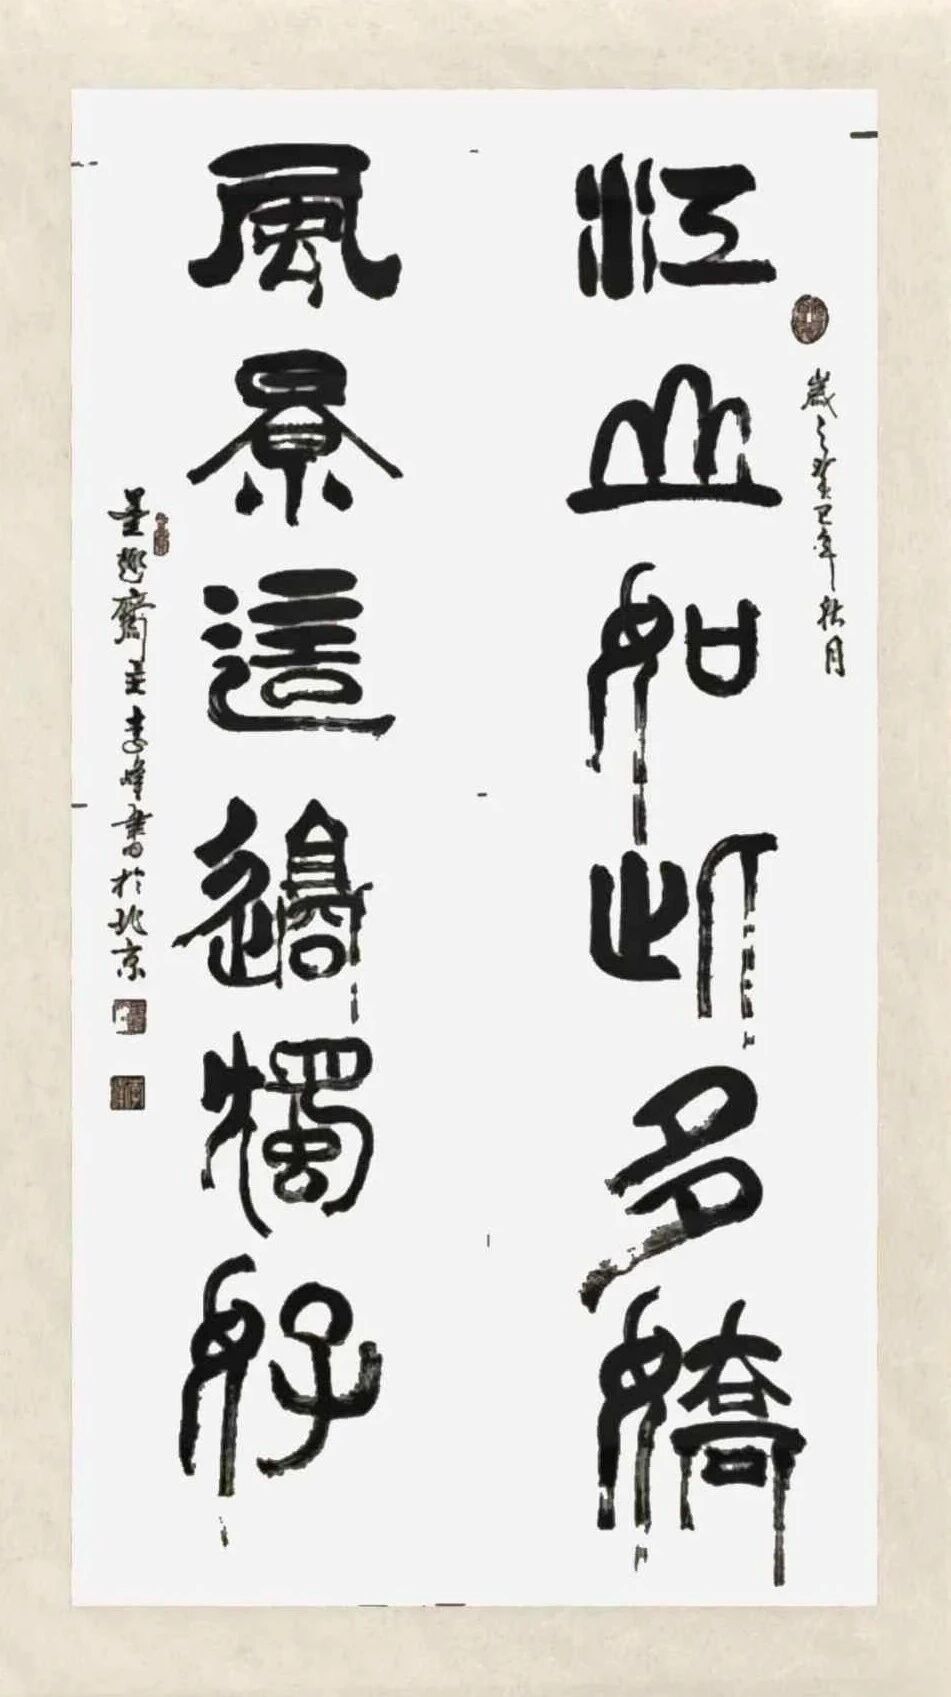 歲之癸巳年秋月
江山如此多嬌
風景這邊獨好
墨趣齋主李峰書於北京